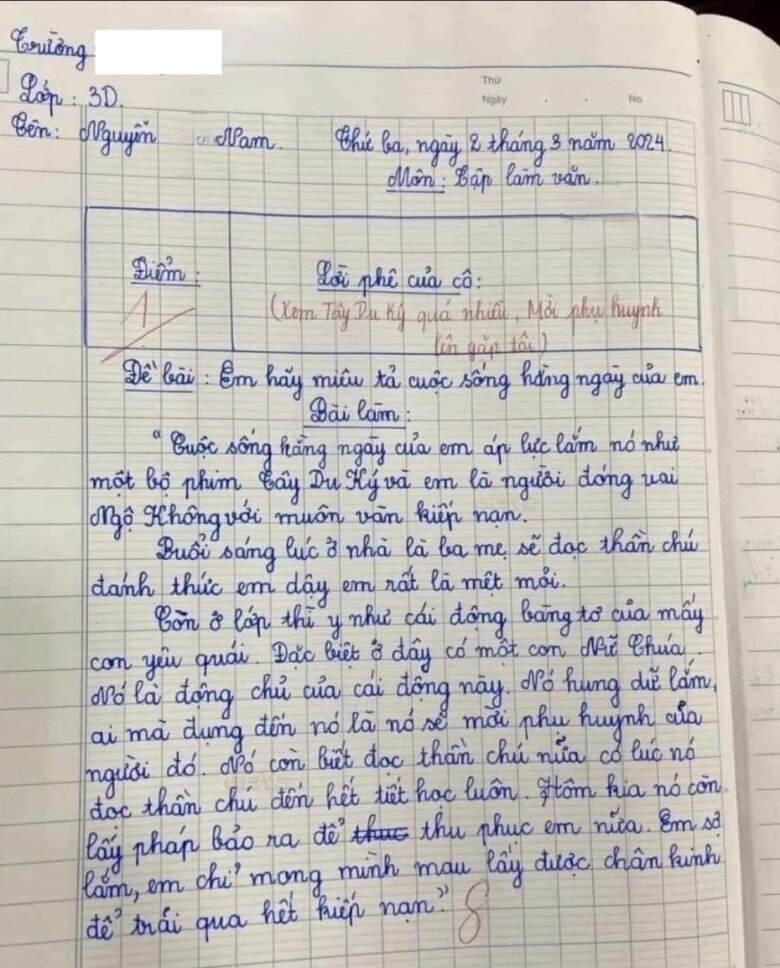 Trường
Thứ
Lớp: 3D.
Ngày . . No.
Tên: Nguyễn Nam. Thứ ba, ngày 2 tháng 3 năm 2024.
Môn: Tập làm văn.
Điểm: Lời phê của cô:
1 (Xem Tây Du Ký quá nhiều, Mời phụ huynh
lên gặp tôi)
Đề bài: Em hãy miêu tả cuộc sống hằng ngày của em.
Bài làm:
"Cuộc sống hằng ngày của em áp lực lắm nó như
một bộ phim Tây Du Ký và em là người đóng vai
Ngộ Không với muôn vàn kiếp nạn.
Buổi sáng lúc ở nhà là ba mẹ sẽ đọc thần chú
đánh thức em dậy em rất là mệt mỏi.
Còn ở lớp thì y như cái động bàng tơ của mấy
con yêu quái. Đặc biệt ở đây có một con Nữ Chúa.
Nó là động chủ của cái động này. Nó hung dữ lắm,
ai mà đụng đến nó là nó sẽ mời phụ huynh của
người đó. Nó còn biết đọc thần chú nữa có lúc nó
đọc thần chú đến hết tiết học luôn. Hôm kia nó còn
lấy pháp bảo ra để thuc thu phục em nữa. Em sợ
lắm, em chỉ mong mình mau lấy được chân kinh
để trải qua hết kiếp nạn."